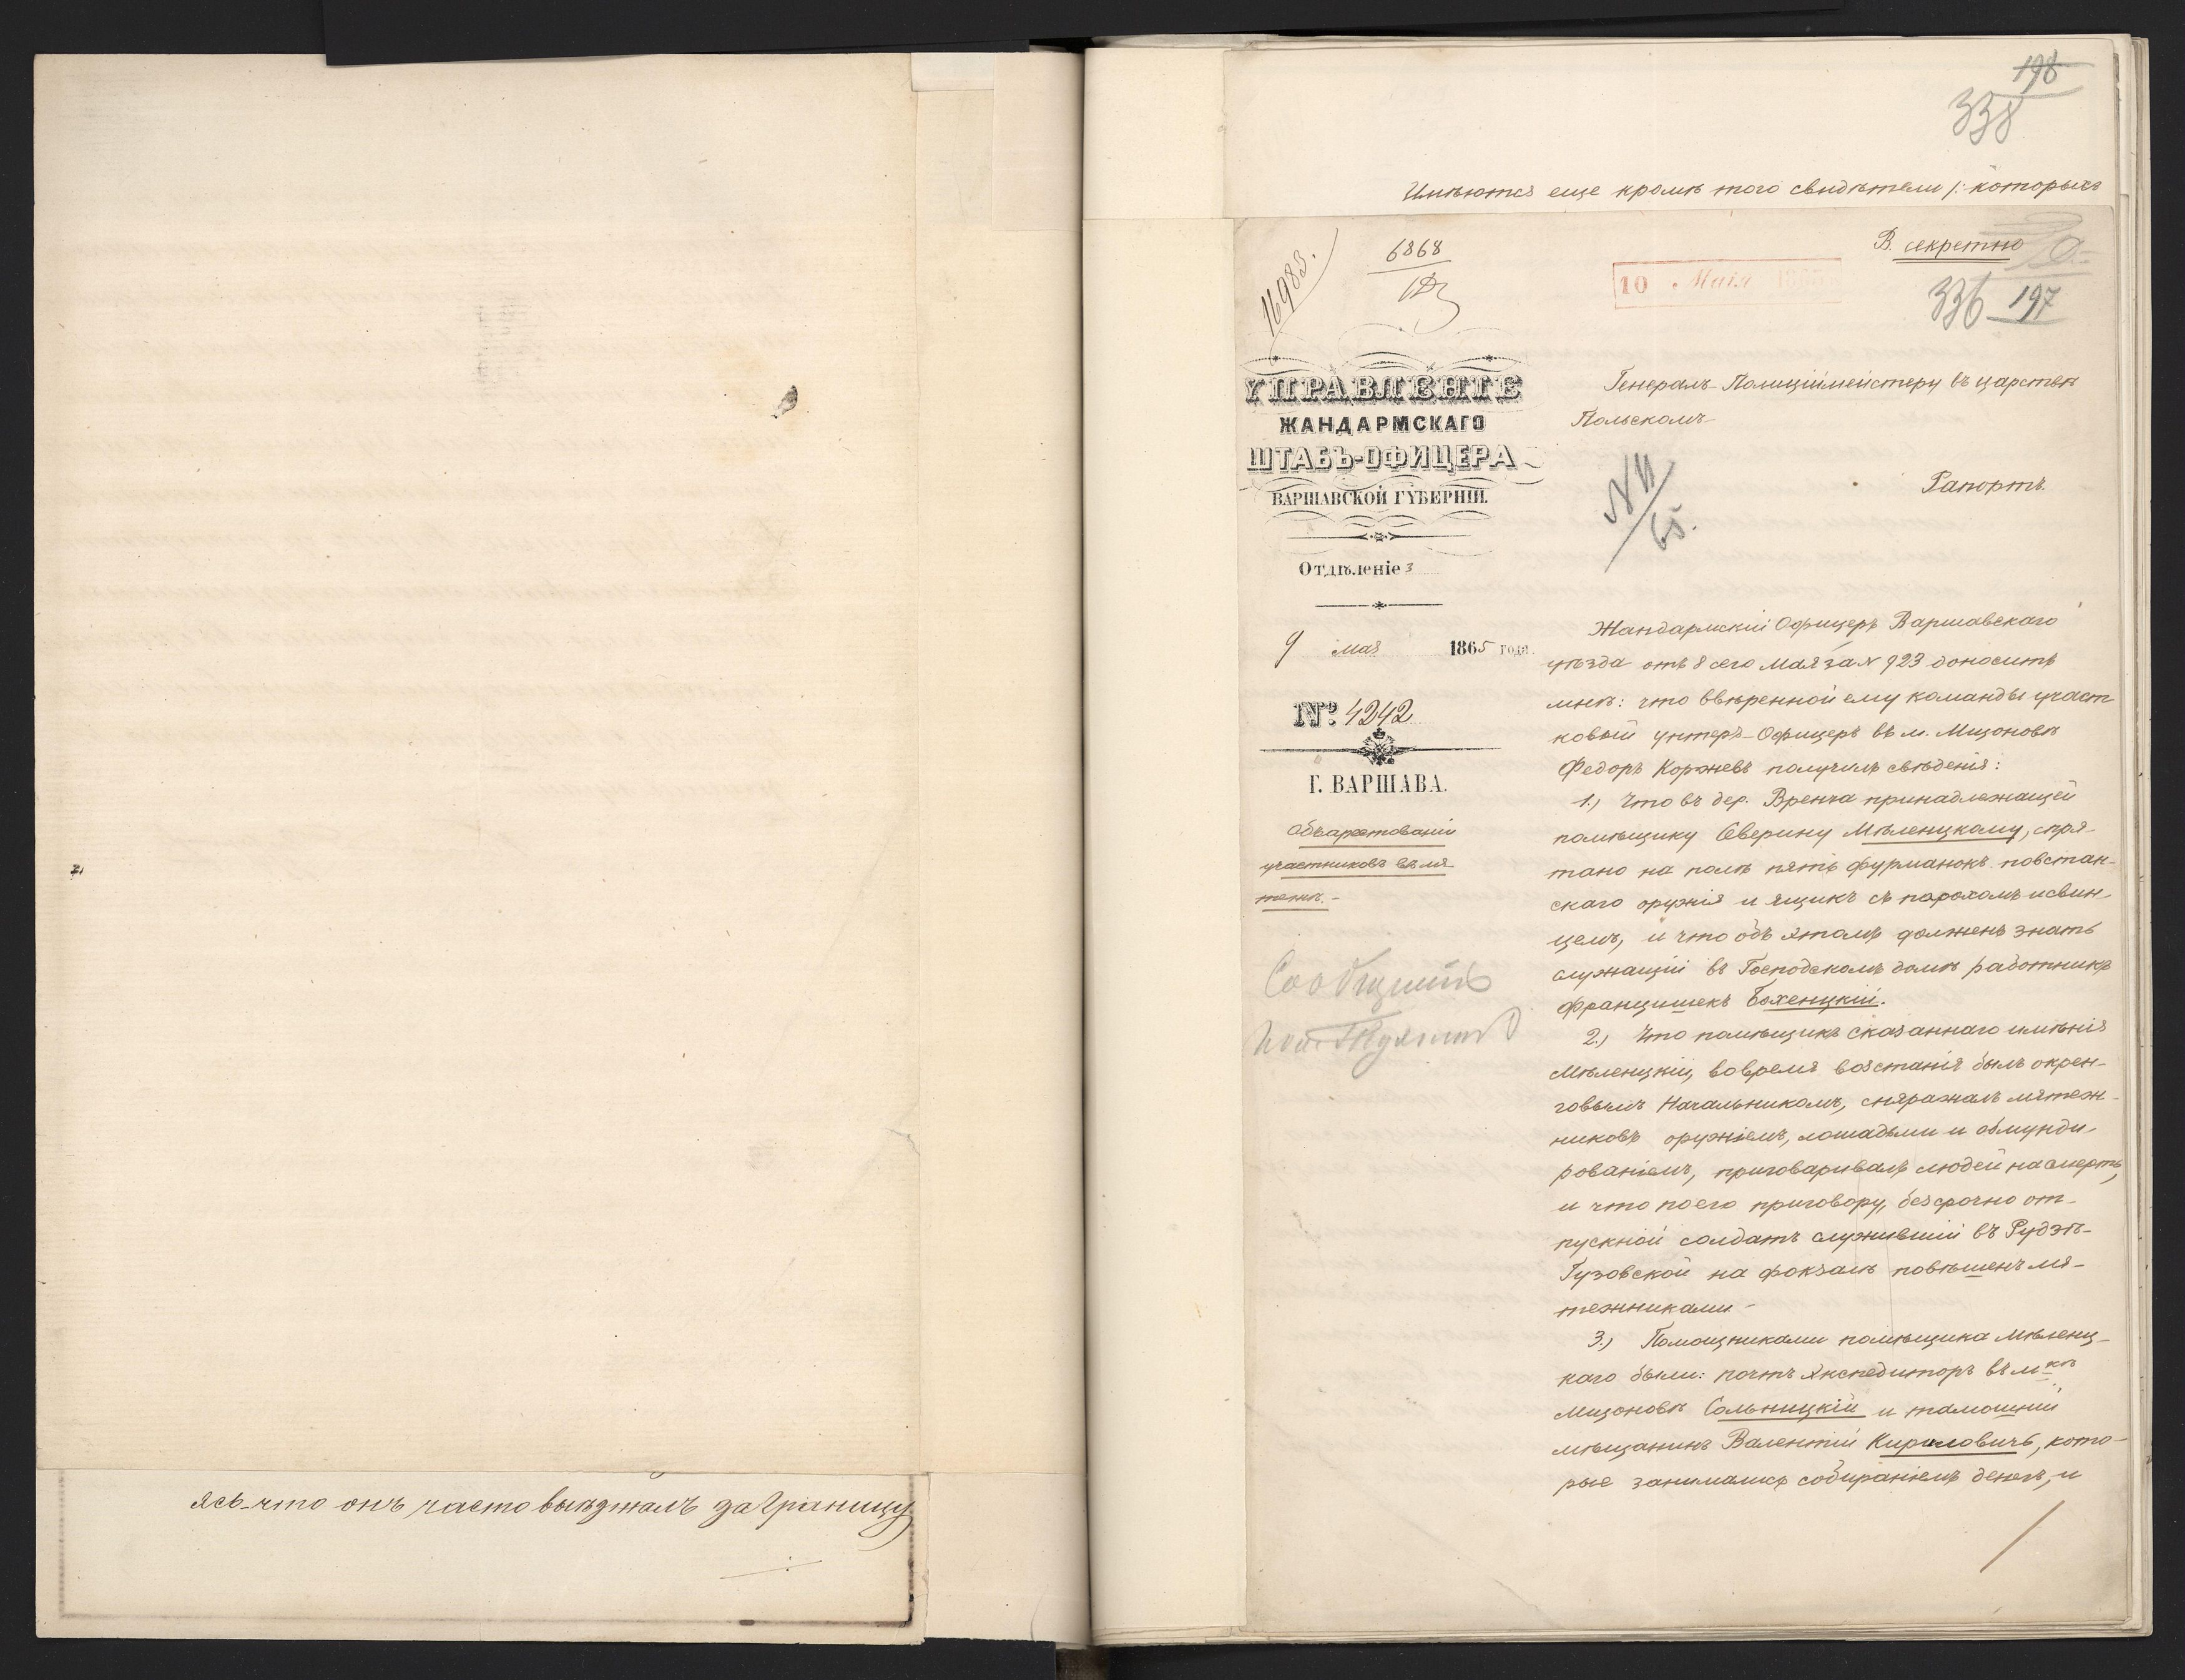 ясь что онъ часто выѣзжалъ заграницу
198
338
Имѣются еще кромѣ того свидѣтели /: которыхъ
16983.
6868
В. секретно
10 Мaiя 1865
336 197
УПРАВЛЕНІЕ
ЖАНДАРМСКАГО
ШТАБЪ-ОФИЦЕРА
ВАРШАВСКОЙ ГУБЕРНІИ.
Отдѣленіе 3
9 мая 1865 года.
№ 4242
Г. ВАРШАВА.
Объ арестованіи
участниковъ въ мя-
тежѣ.-
Генералъ-Полиціймейстеру въ царствѣ
Польскомъ
Рапортъ.
Жандармскій Офицеръ Варшавскаго
уѣзда отъ 8 сего Мая за № 923 доноситъ
мнѣ: что ввѣренной ему команды участ
ковый унтеръ-Офицеръ въ м. Мщоновѣ
Федоръ Коржевъ получилъ свѣденія:
1.) Что въ дер. Вренча принадлежащей
помѣщику Северину Мѣленцкому, спря-
тано на полѣ пять фурманокъ повстан-
скаго оружія и ящикъ съ порохомъ и свин-
цемъ, и что объ этомъ долженъ знать
служащій въ Господскомъ домѣ работникъ
Францишекъ Бохенцкій.
2.) Что помѣщикъ сказаннаго имѣнія
Мѣленцкій, вовремя возстанія былъ окрен-
говымъ Начальникомъ, снаряжалъ мятеж-
никовъ оружіемъ, лошадьми и обмунди-
рованіемъ, приговаривалъ людей на смерть,
и что по его приговору, безсрочно от-
пускной солдатъ служившій въ Рудзѣ-
Гузовской на фокзалѣ повѣшенъ мя-
тежниками.-
3.) Помощниками помѣщика Мѣленц-
каго были: почтъ экспедиторъ въ мкѣ
Мщоновѣ Сольницкій и тамошній
мѣщанинъ Валентій Кириловичъ, кото-
рые занимались собираніемъ денегъ, и